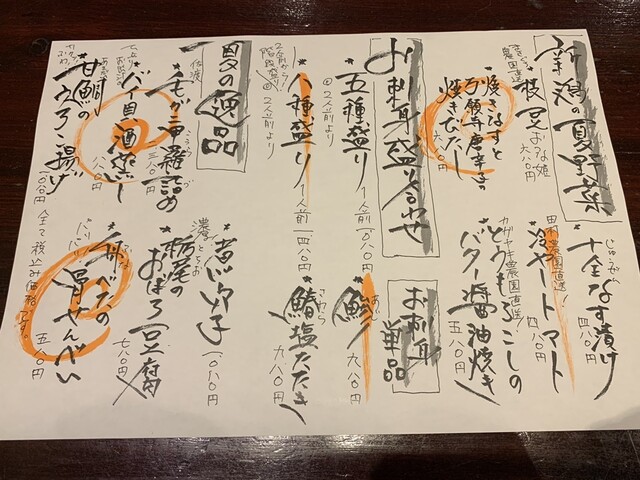 新潟の夏野菜
農園直送
枝豆
おつな姫
六八〇円
*焼きなすと
万願寺唐辛子の
焼きびたし
六八〇円
じゅうぜん
十全なす漬け
四八〇円
農園直送!
冷やしトマト
四八〇円
カガヤキ農園直送!
とうもろこしの
バター醤油焼き
五八〇円
お刺身盛り合わせ
*五種盛り
一人前一〇八〇円
◎2人前より
2人前から!
階段盛り!
*八種盛り
一人前一四八〇円
◎2人前より
お刺身
単品
*鯵
あじ
九八〇円
*鰆塩たたき
さわら
九八〇円
夏の逸品
佐渡
*毛ガニ甲羅詰め
こうら
*バイ貝酒蒸し
八八〇円
*甘鯛の
うろこ揚げ
一〇八〇円
一〇八〇円
*栃尾の
おぼろ豆腐
七八〇円
せんべい
五八〇円
全て税込み価格です。